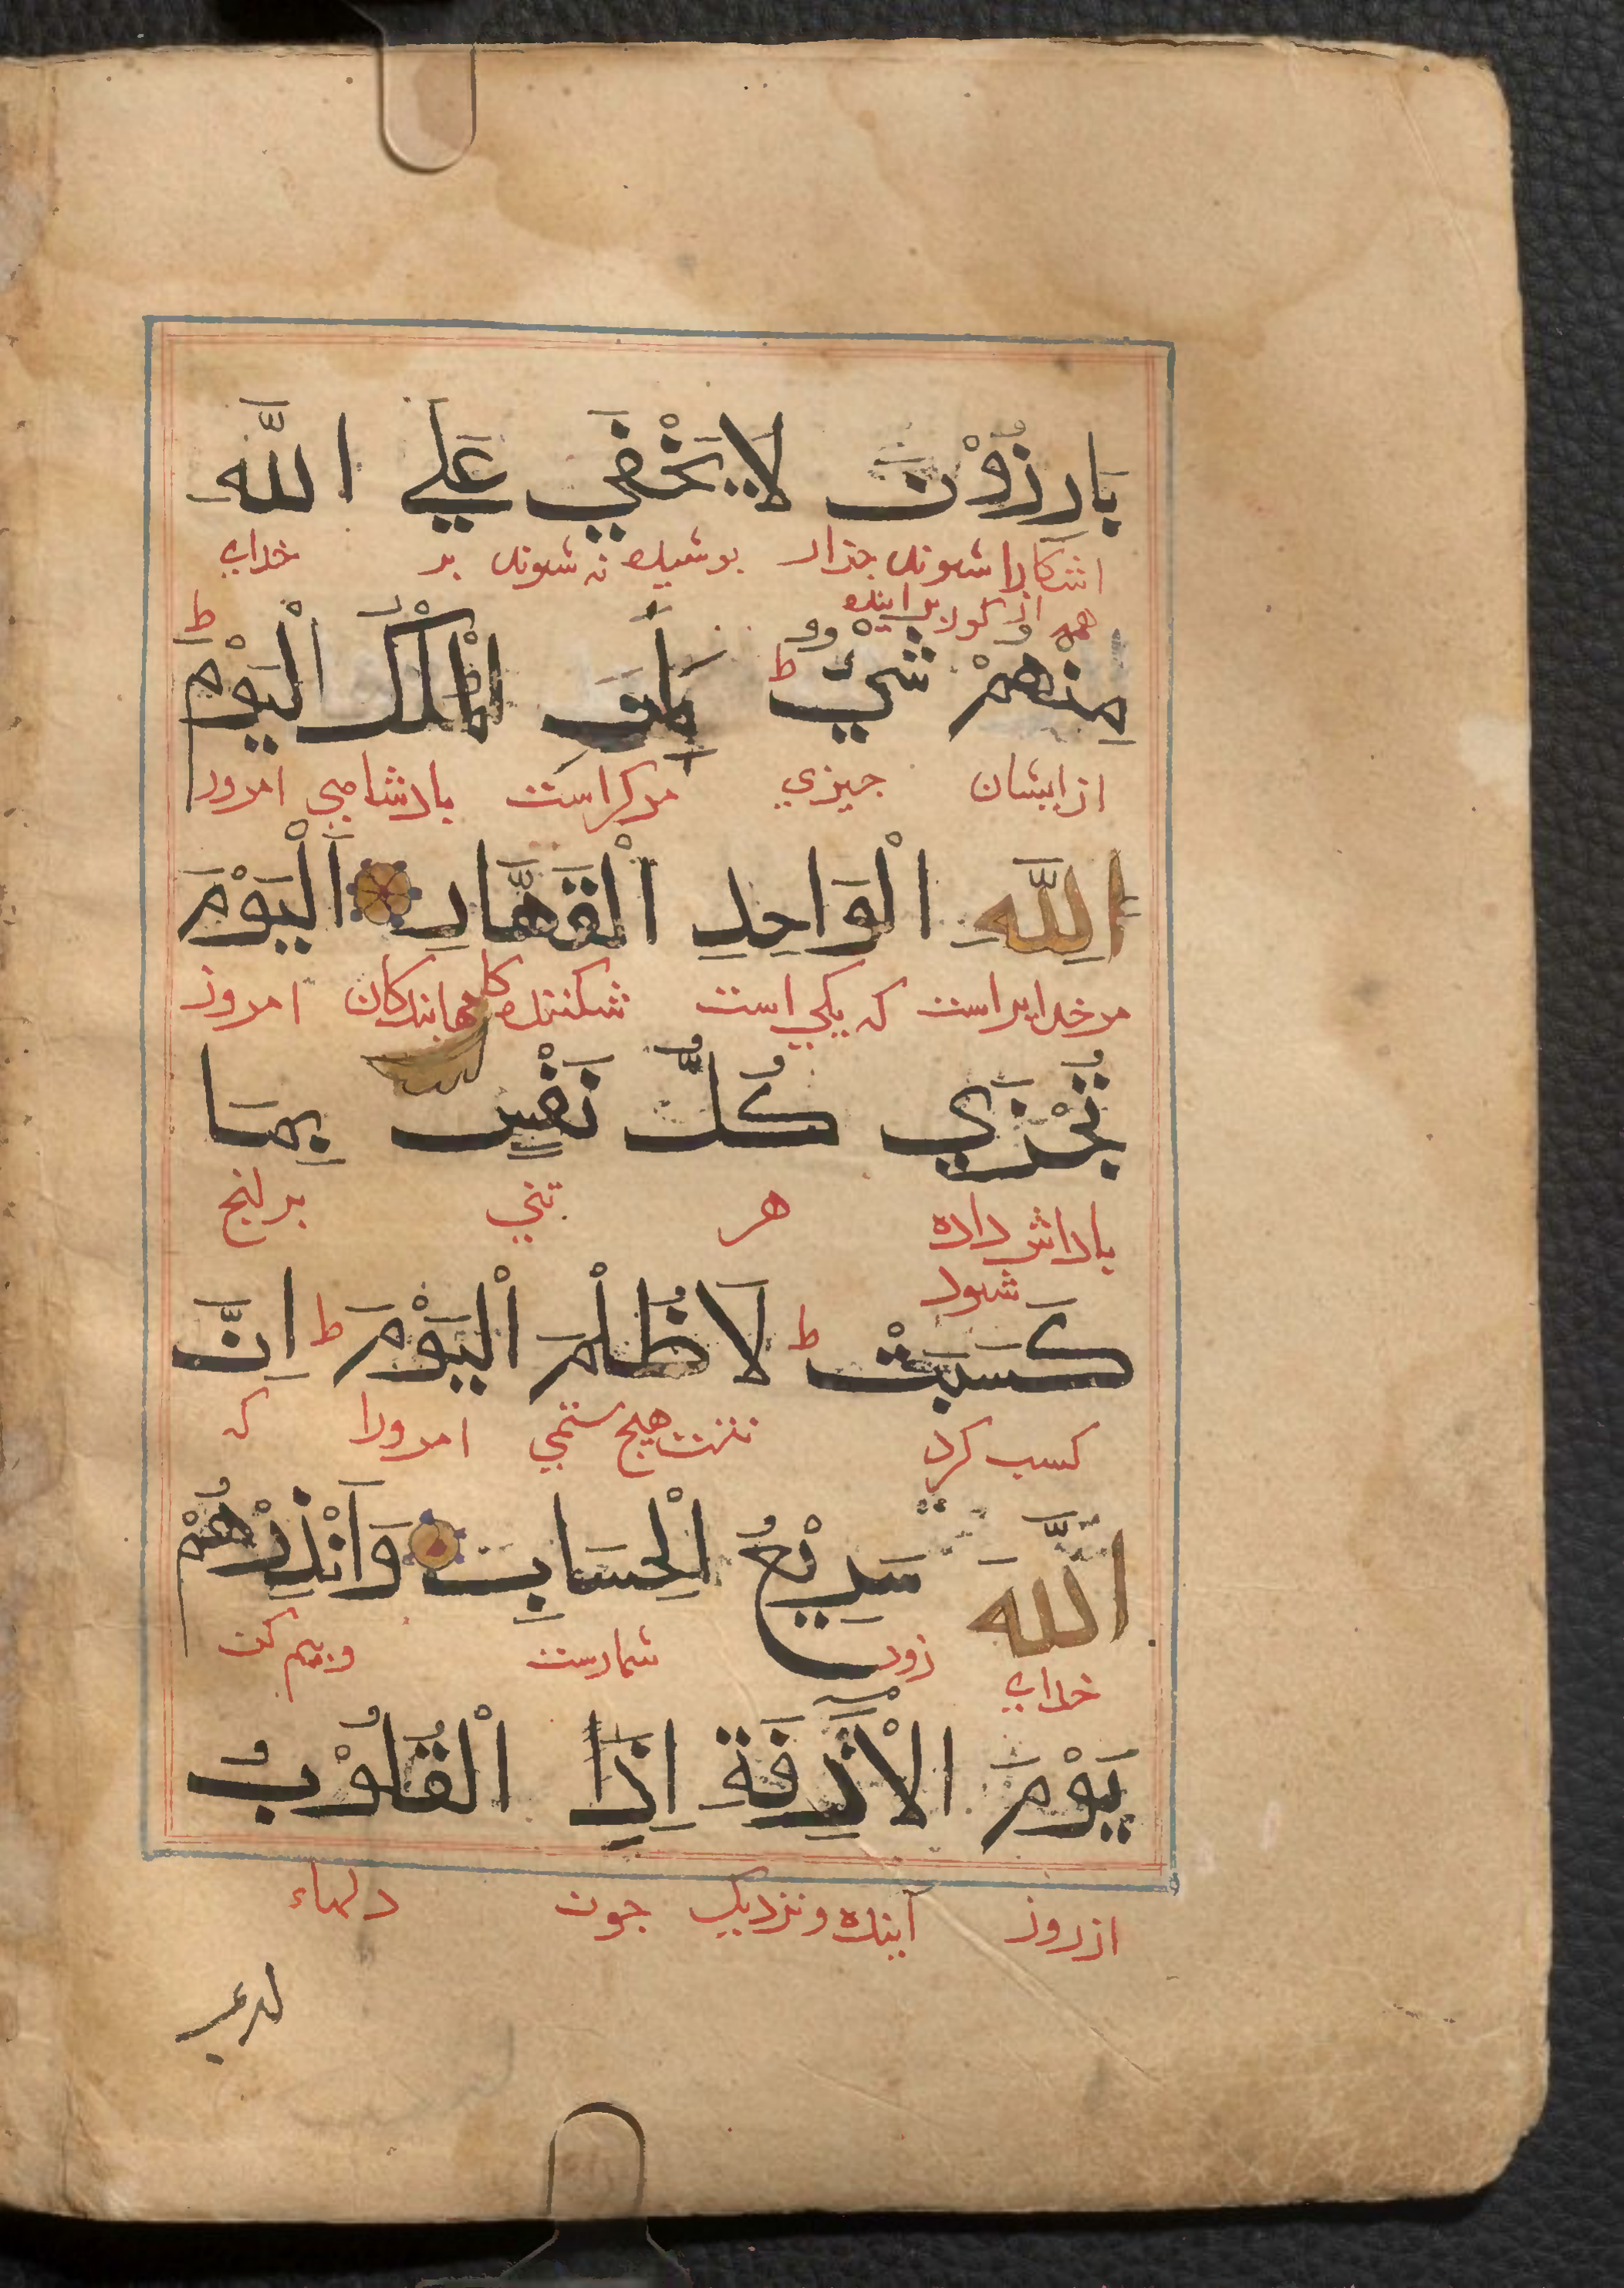 بَارِزُوْنَ لَا يَخْفٰي عَلَي اللّٰهِ
اشكارا شوند چنزار بوشيده نه شوند بر خداي
همه از كور برايند
مِنْهُمْ شَيْءٌ ط لِمَنِ الْمُلْكُ الْيَوْمَ ط
از ايشان چيزي مركراست بادشاهي امروز
لِلّٰهِ الْوَاحِدِ الْقَهَّارِ اَلْيَوْمَ
مر خدايراست كه يكي است شكننده كامهابندكان امروز
تُجْزٰي كُلُّ نَفْسٍ بِمَا
باداش داده هر تني بدانچ
شود
كَسَبَتْ ط لَا ظُلْمَ الْيَوْمَ ط اِنَّ
كسب كرد نيست هيچ ستمي امروزا كه
اللّٰهَ سَرِيْعُ الْحِسَابِ وَاَنْذِرْهُمْ
خداي زود شمارست وبيم كن
يَوْمَ الْاٰزِفَةِ اِذِ الْقُلُوْبُ
از روز آينده ونزديك چون دلهاء
لدي